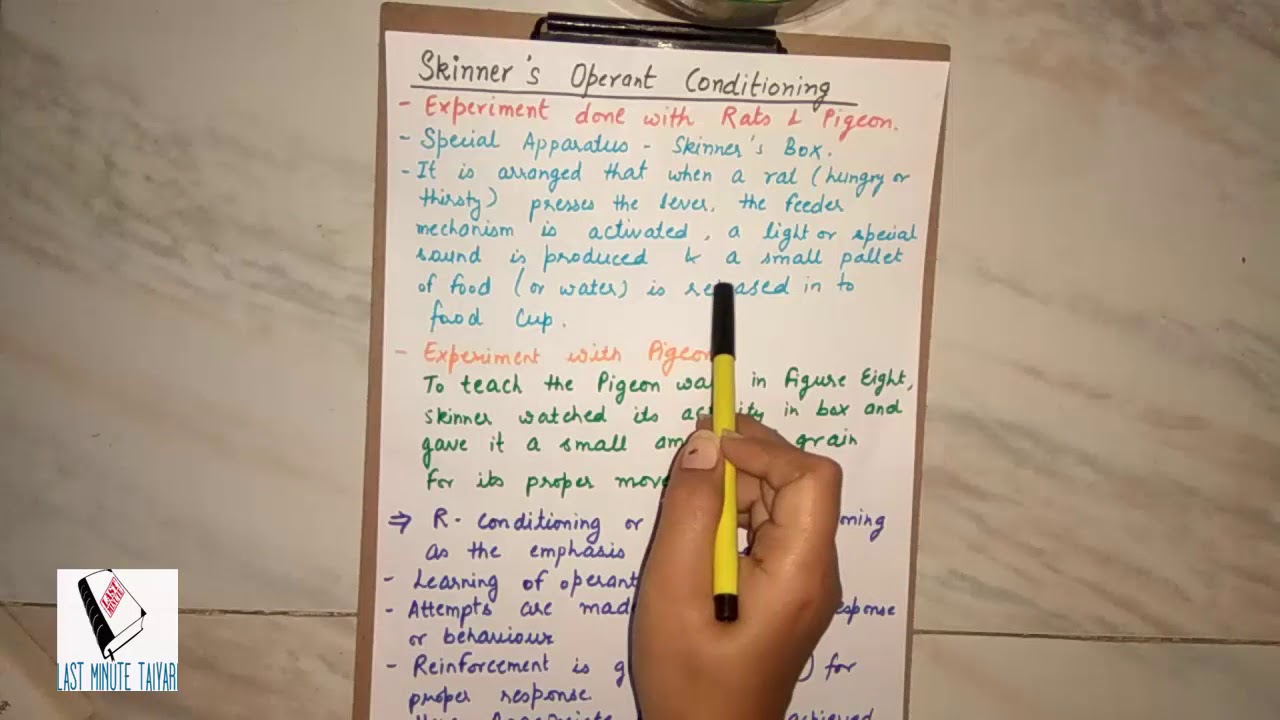 Skinner's Operant Conditioning
- Experiment done with Rats & Pigeon.
- Special Apparatus - Skinner's Box.
- It is arranged that when a rat (hungry or
thirsty) presses the lever, the feeder
mechanism is activated, a light or special
sound is produced & a small pallet
of food (or water) is released in to
food cup.
- Experiment with Pigeon
To teach the Pigeon in figure Eight,
Skinner watched its activity in box and
gave it a small grain
for its proper
⇒ R- conditioning or
as the emphasis
- Learning of operant
- Attempts are response
or behaviour
- Reinforcement is for
proper response.
achieved
LAST MINUTE
LAST MINUTE TAIYARI